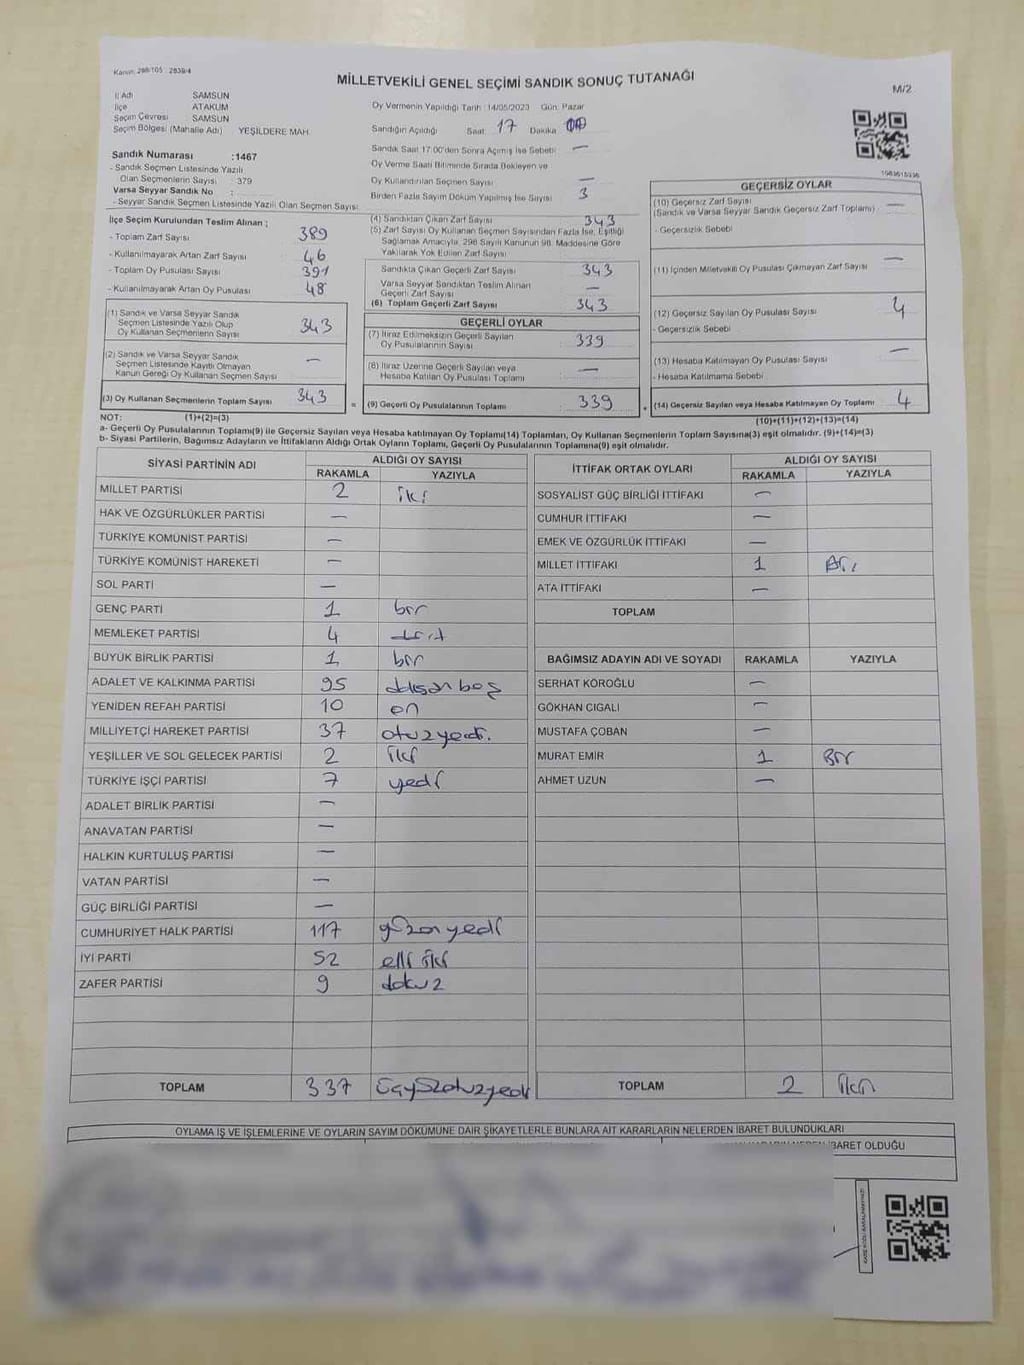 Kanun: 298/105 - 2839/4
MİLLETVEKİLİ GENEL SEÇİMİ SANDIK SONUÇ TUTANAĞI
M/2
İl Adı SAMSUN
İlçe ATAKUM
Seçim Çevresi SAMSUN
Seçim Bölgesi (Mahalle Adı) YEŞİLDERE MAH.
Oy Vermenin Yapıldığı Tarih :14/05/2023 Gün: Pazar
Sandığın Açıldığı Saat 17 Dakika
Sandık Saat 17:00'den Sonra Açımış İse Sebebi: —
Oy Verme Saati Bitiminde Sırada Bekleyen ve
Oy Kullandırılan Seçmen Sayısı —
Birden Fazla Sayım Döküm Yapılmış İse Sayısı 3
Sandık Numarası :1467
- Sandık Seçmen Listesinde Yazılı
Olan Seçmenlerin Sayısı : 379
Varsa Seyyar Sandık No :
- Seyyar Sandık Seçmen Listesinde Yazılı Olan Seçmen Sayısı:
İlçe Seçim Kurulundan Teslim Alınan ;
- Toplam Zarf Sayısı 389
- Kullanılmayarak Artan Zarf Sayısı 46
- Toplam Oy Pusulası Sayısı 391
- Kullanılmayarak Artan Oy Pusulası 48
(1) Sandık ve Varsa Seyyar Sandık
Seçmen Listesinde Yazılı Olup
Oy Kullanan Seçmenlerin Sayısı 343
(2) Sandık ve Varsa Seyyar Sandık
Seçmen Listesinde Kayıtlı Olmayan
Kanun Gereği Oy Kullanan Seçmen Sayısı —
(3) Oy Kullanan Seçmenlerin Toplam Sayısı 343
(4) Sandıktan Çıkan Zarf Sayısı 343
(5) Zarf Sayısı Oy Kullanan Seçmen Sayısından Fazla İse, Eşitliği
Sağlamak Amacıyla, 298 Sayılı Kanunun 98. Maddesine Göre
Yakılarak Yok Edilen Zarf Sayısı
Sandıkta Çıkan Geçerli Zarf Sayısı 343
Varsa Seyyar Sandıktan Teslim Alınan
Geçerli Zarf Sayısı —
(6) Toplam Geçerli Zarf Sayısı 343
GEÇERLİ OYLAR
(7) İtiraz Edilmeksizin Geçerli Sayılan
Oy Pusulalarının Sayısı 339
(8) İtiraz Üzerine Geçerli Sayılan veya
Hesaba Katılan Oy Pusulası Toplamı —
= (9) Geçerli Oy Pusulalarının Toplamı 339
1563615936
GEÇERSİZ OYLAR
(10) Geçersiz Zarf Sayısı —
(Sandık ve Varsa Seyyar Sandık Geçersiz Zarf Toplamı)
- Geçersizlik Sebebi
(11) İçinden Milletvekili Oy Pusulası Çıkmayan Zarf Sayısı —
(12) Geçersiz Sayılan Oy Pusulası Sayısı 4
- Geçersizlik Sebebi
(13) Hesaba Katılmayan Oy Pusulası Sayısı —
- Hesaba Katılmama Sebebi
+ (14) Geçersiz Sayılan veya Hesaba Katılmayan Oy Toplamı 4
NOT: (1)+(2)=(3) (10)+(11)+(12)+(13)=(14)
a- Geçerli Oy Pusulalarının Toplamı(9) ile Geçersiz Sayılan veya Hesaba katılmayan Oy Toplamı(14) Toplamları, Oy Kullanan Seçmenlerin Toplam Sayısına(3) eşit olmalıdır. (9)+(14)=(3)
b- Siyasi Partilerin, Bağımsız Adayların ve İttifakların Aldığı Ortak Oyların Toplamı, Geçerli Oy Pusulalarının Toplamına(9) eşit olmalıdır.
SİYASİ PARTİNİN ADI ALDIĞI OY SAYISI
RAKAMLA YAZIYLA
MİLLET PARTİSİ 2 iki
HAK VE ÖZGÜRLÜKLER PARTİSİ —
TÜRKİYE KOMÜNİST PARTİSİ —
TÜRKİYE KOMÜNİST HAREKETİ —
SOL PARTİ —
GENÇ PARTİ 1 bir
MEMLEKET PARTİSİ 4 dört
BÜYÜK BİRLİK PARTİSİ 1 bir
ADALET VE KALKINMA PARTİSİ 95
YENİDEN REFAH PARTİSİ 10 on
MİLLİYETÇİ HAREKET PARTİSİ 37 otuzyedi.
YEŞİLLER VE SOL GELECEK PARTİSİ 2 iki
TÜRKİYE İŞÇİ PARTİSİ 7 yedi
ADALET BİRLİK PARTİSİ —
ANAVATAN PARTİSİ —
HALKIN KURTULUŞ PARTİSİ —
VATAN PARTİSİ —
GÜÇ BİRLİĞİ PARTİSİ —
CUMHURİYET HALK PARTİSİ 117 yüzonyedi
İYİ PARTİ 52 elli iki
ZAFER PARTİSİ 9 dokuz
TOPLAM 337 üçyüzotuzyedi
İTTİFAK ORTAK OYLARI ALDIĞI OY SAYISI
RAKAMLA YAZIYLA
SOSYALİST GÜÇ BİRLİĞİ İTTİFAKI —
CUMHUR İTTİFAKI —
EMEK VE ÖZGÜRLÜK İTTİFAKI —
MİLLET İTTİFAKI 1 Bir
ATA İTTİFAKI —
TOPLAM
BAĞIMSIZ ADAYIN ADI VE SOYADI RAKAMLA YAZIYLA
SERHAT KÖROĞLU —
GÖKHAN CIGALI —
MUSTAFA ÇOBAN —
MURAT EMİR 1 Bir
AHMET UZUN —
TOPLAM 2 iki
OYLAMA İŞ VE İŞLEMLERİNE VE OYLARIN SAYIM DÖKÜMÜNE DAİR ŞİKAYETLERLE BUNLARA AİT KARARLARIN NELERDEN İBARET BULUNDUKLARI
İBARET OLDUĞU